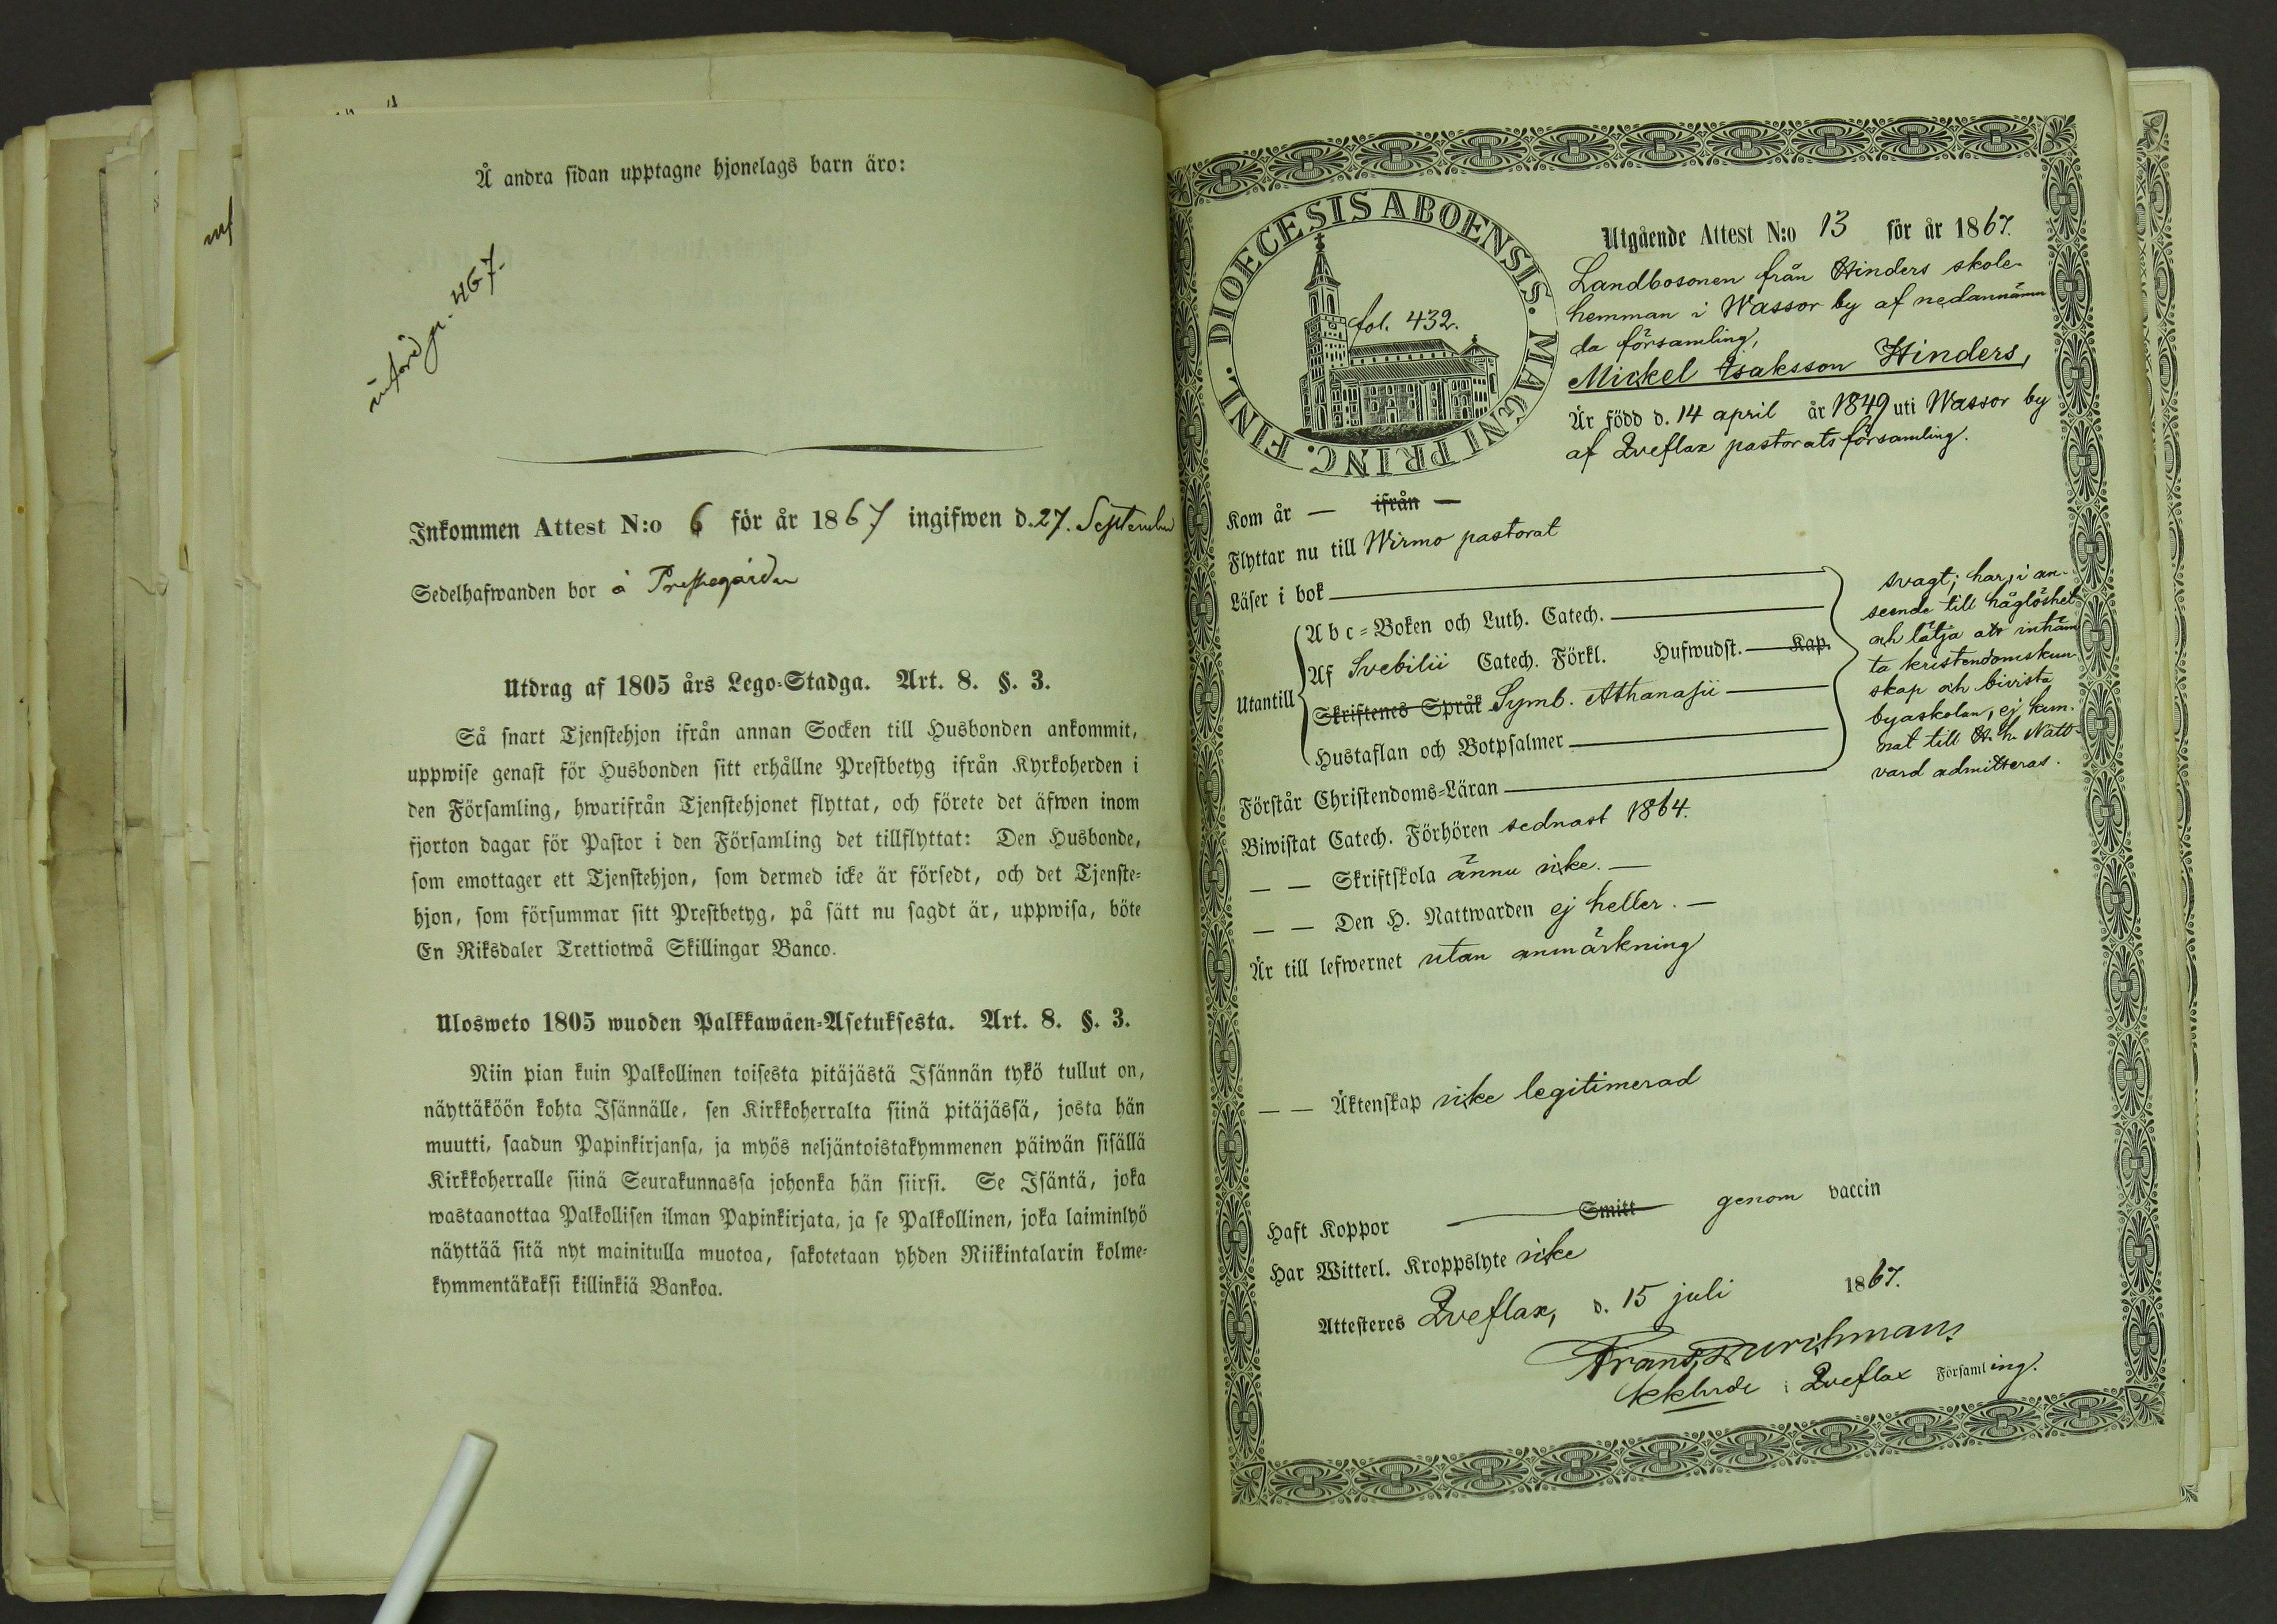 Å andra sidan upptagne hjonelags barn äro:
införd p. 467.
Inkommen Attest N:o 6 för år 1867 ingifwen d. 27. September
Sedelhafwanden bor å Prestegården
Utdrag af 1805 års Lego-Stadga. Art. 8. §. 3.
Så snart Tjenstehjon ifrån annan Socken till Husbonden ankommit,
uppwise genast för Husbonden sitt erhållne Prestbetyg ifrån Kyrkoherden i
den Församling, hwarifrån Tjenstehjonet flyttat, och förete det äfwen inom
fjorton dagar för Pastor i den Församling det tillflyttat: Den Husbonde,
som emottager ett Tjenstehjon, som dermed icke är försedt, och det Tjenste-
hjon, som försummar sitt Prestbetyg, på sätt nu sagdt är, uppwisa, böte
En Riksdaler Trettiotwå Skillingar Banco.
Ulosweto 1805 wuoden Palkkawäen-Asetuksesta. Art. 8. §. 3.
Niin pian kuin Palkollinen toisesta pitäjästä Isännän tykö tullut on,
näyttäköön kohta Isännälle, sen Kirkkoherralta siinä pitäjässä, josta hän
muutti, saadun Papinkirjansa, ja myös neljäntoistakymmenen päiwän sisällä
Kirkkoherralle siinä Seurakunnassa johonka hän siirsi. Se Isäntä, joka
wastaanottaa Palkollisen ilman Papinkirjata, ja se Palkollinen, joka laiminlyö
näyttää sitä nyt mainitulla muotoa, sakotetaan yhden Riikintalarin kolme-
kymmentäkaksi killinkiä Bankoa.
DIOECESIS ABOENSIS. MAGNI PRINC. FINL.
fol. 432.
Utgående Attest N:o 13 för år 1867.
Landbosonen från Hinders skole-
hemman i Wassor by af nedannämn
da församling,
Mickel Isaksson Hinders,
Är född d. 14 april år 1849 uti Wassor by
af Qveflax pastorats församling.
Kom år — ifrån —
Flyttar nu till Wirmo pastorat
Läser i bok
Utantill
Abc-Boken och Luth. Catech.
Af Svebilii Catech. Förkl. Hufwudst. Kap.
Skriftenes Språk Symb. Athanasii
Hustaflan och Botpsalmer
Förstår Christendoms-Läran
svagt; har, i an-
seende till håglöshet
och lätja att inhäm
ta kristendomskun
skap och bivista
byaskolan, ej kun-
nat till H. h. Natt-
vard admitteras.
Biwistat Catech. Förhören sednast 1864.
— — Skriftskola ännu icke. —
— — Den H. Nattwarden ej heller. —
Är till lefwernet utan anmärkning
— — Äktenskap icke legitimerad
Haft Koppor Smitt genom vaccin
Har Witterl. Kroppslyte icke
Attesteres Qveflax, d. 15 juli 1867.
Frans Durchman,
kkhrde i Qveflax Församling.